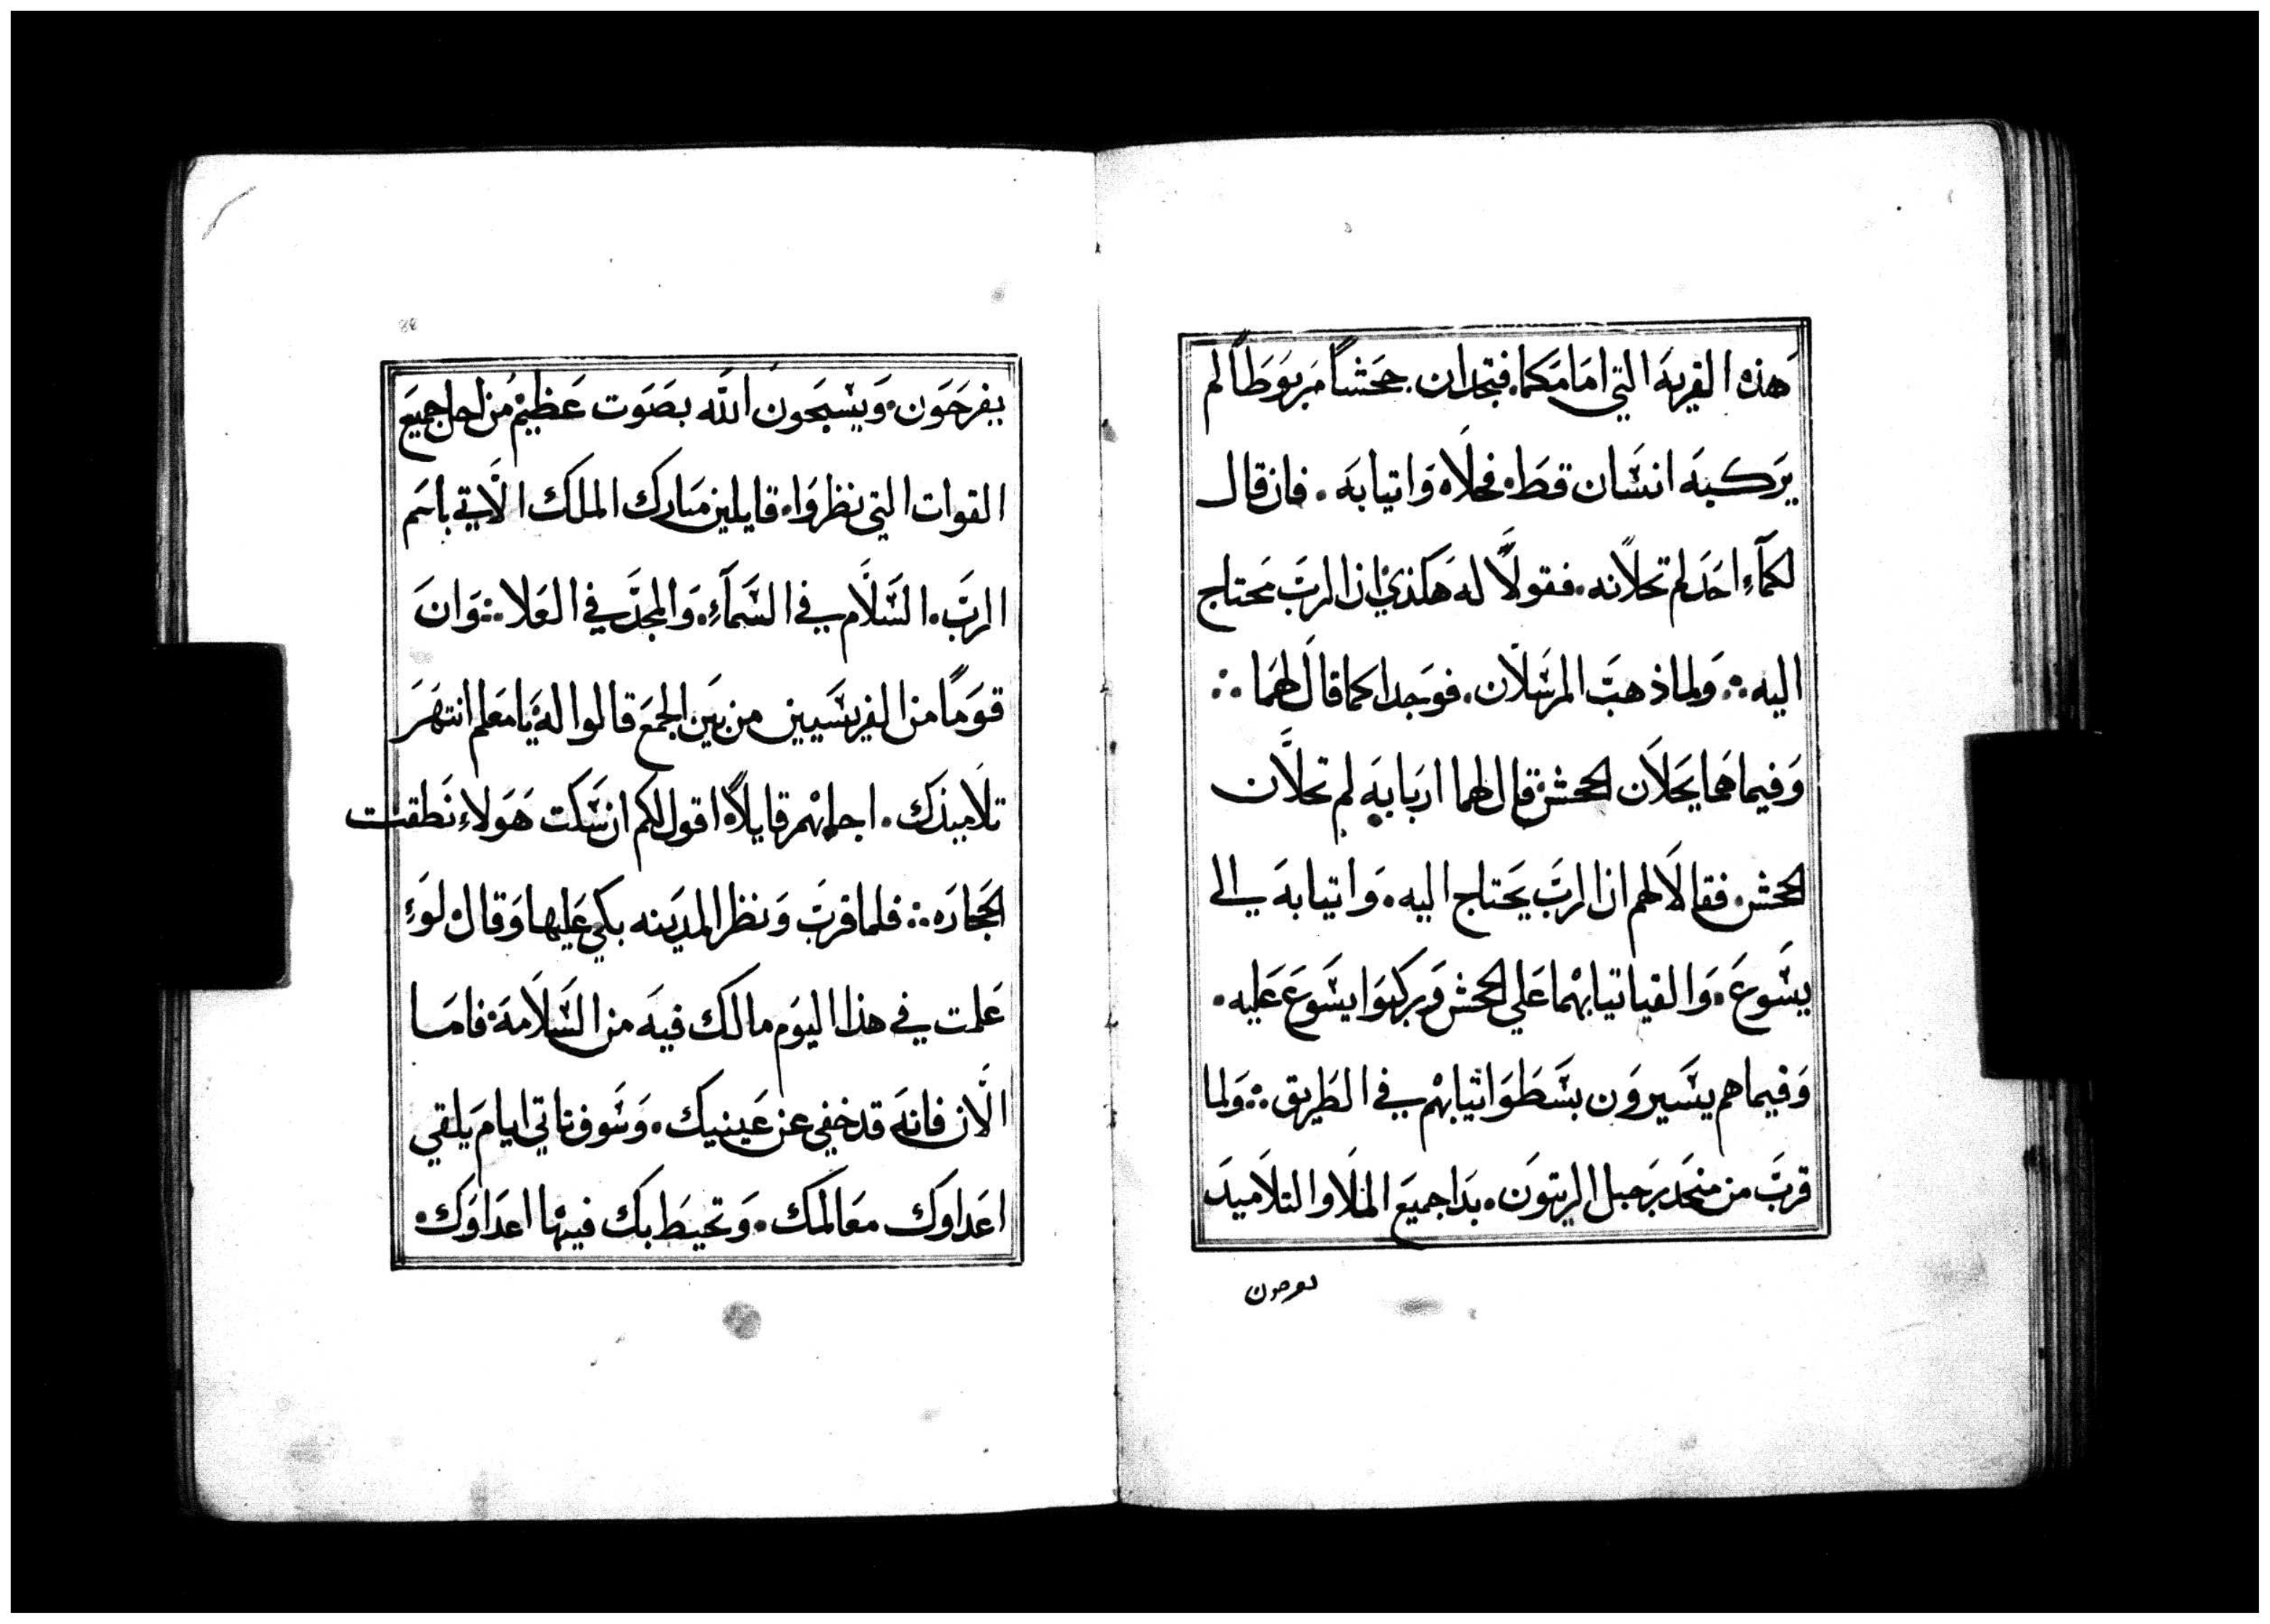 هذه القريه التي امامكما. فتجدان جحشاً مربوطاً لم
يركبه انسان قط. فحلاه واتيا به. فان قال
لكمآءِ احد لم تحلانه. فقولاً له هكذي ان الرب محتاج
اليه ∴ ولما ذهب المرسلان. فوجدا كما قال لهما ∴
وفيما هما يحلان الجحش قال لهما اربابه لم تحلان
الجحش. فقالا لهم ان الرب يحتاج اليه. واتيا به الي
يسوع. والقيا تيابهما علي الجحش وركبوا يسوع عليه.
وفيما هم يسيرون بسطوا ثيابهم في الطريق ∴ ولما
قرب من منحدر جبل الزيتون. بدا جميع الملا والتلاميد
يفرحون
يفرحون. ويسبحون الله بصوت عظيم من اجل جميع
القوات التي نظروا. قايلين مبارك الملك الاتي باسم
الرب. السلام في السمآءِ. والمجد في العلا ∴ وان
قوماً من الفريسيين من بين الجمع قالوا له يا معلم انتهر
تلاميذك. اجابهم قايلاً اقول لكم ان سكت هولاءِ نطقت
الحجاره ∴ فلما قرب ونظر المدينه بكي عليها وقال لوءِ
علمت في هذا اليوم مالك فيه من السلامة. فاما
الان فانه قد خفي عن عينيك. وسوف تاتي ايام يلقي
اعداوك معالمك. وتحيط بك فيها اعداوك.